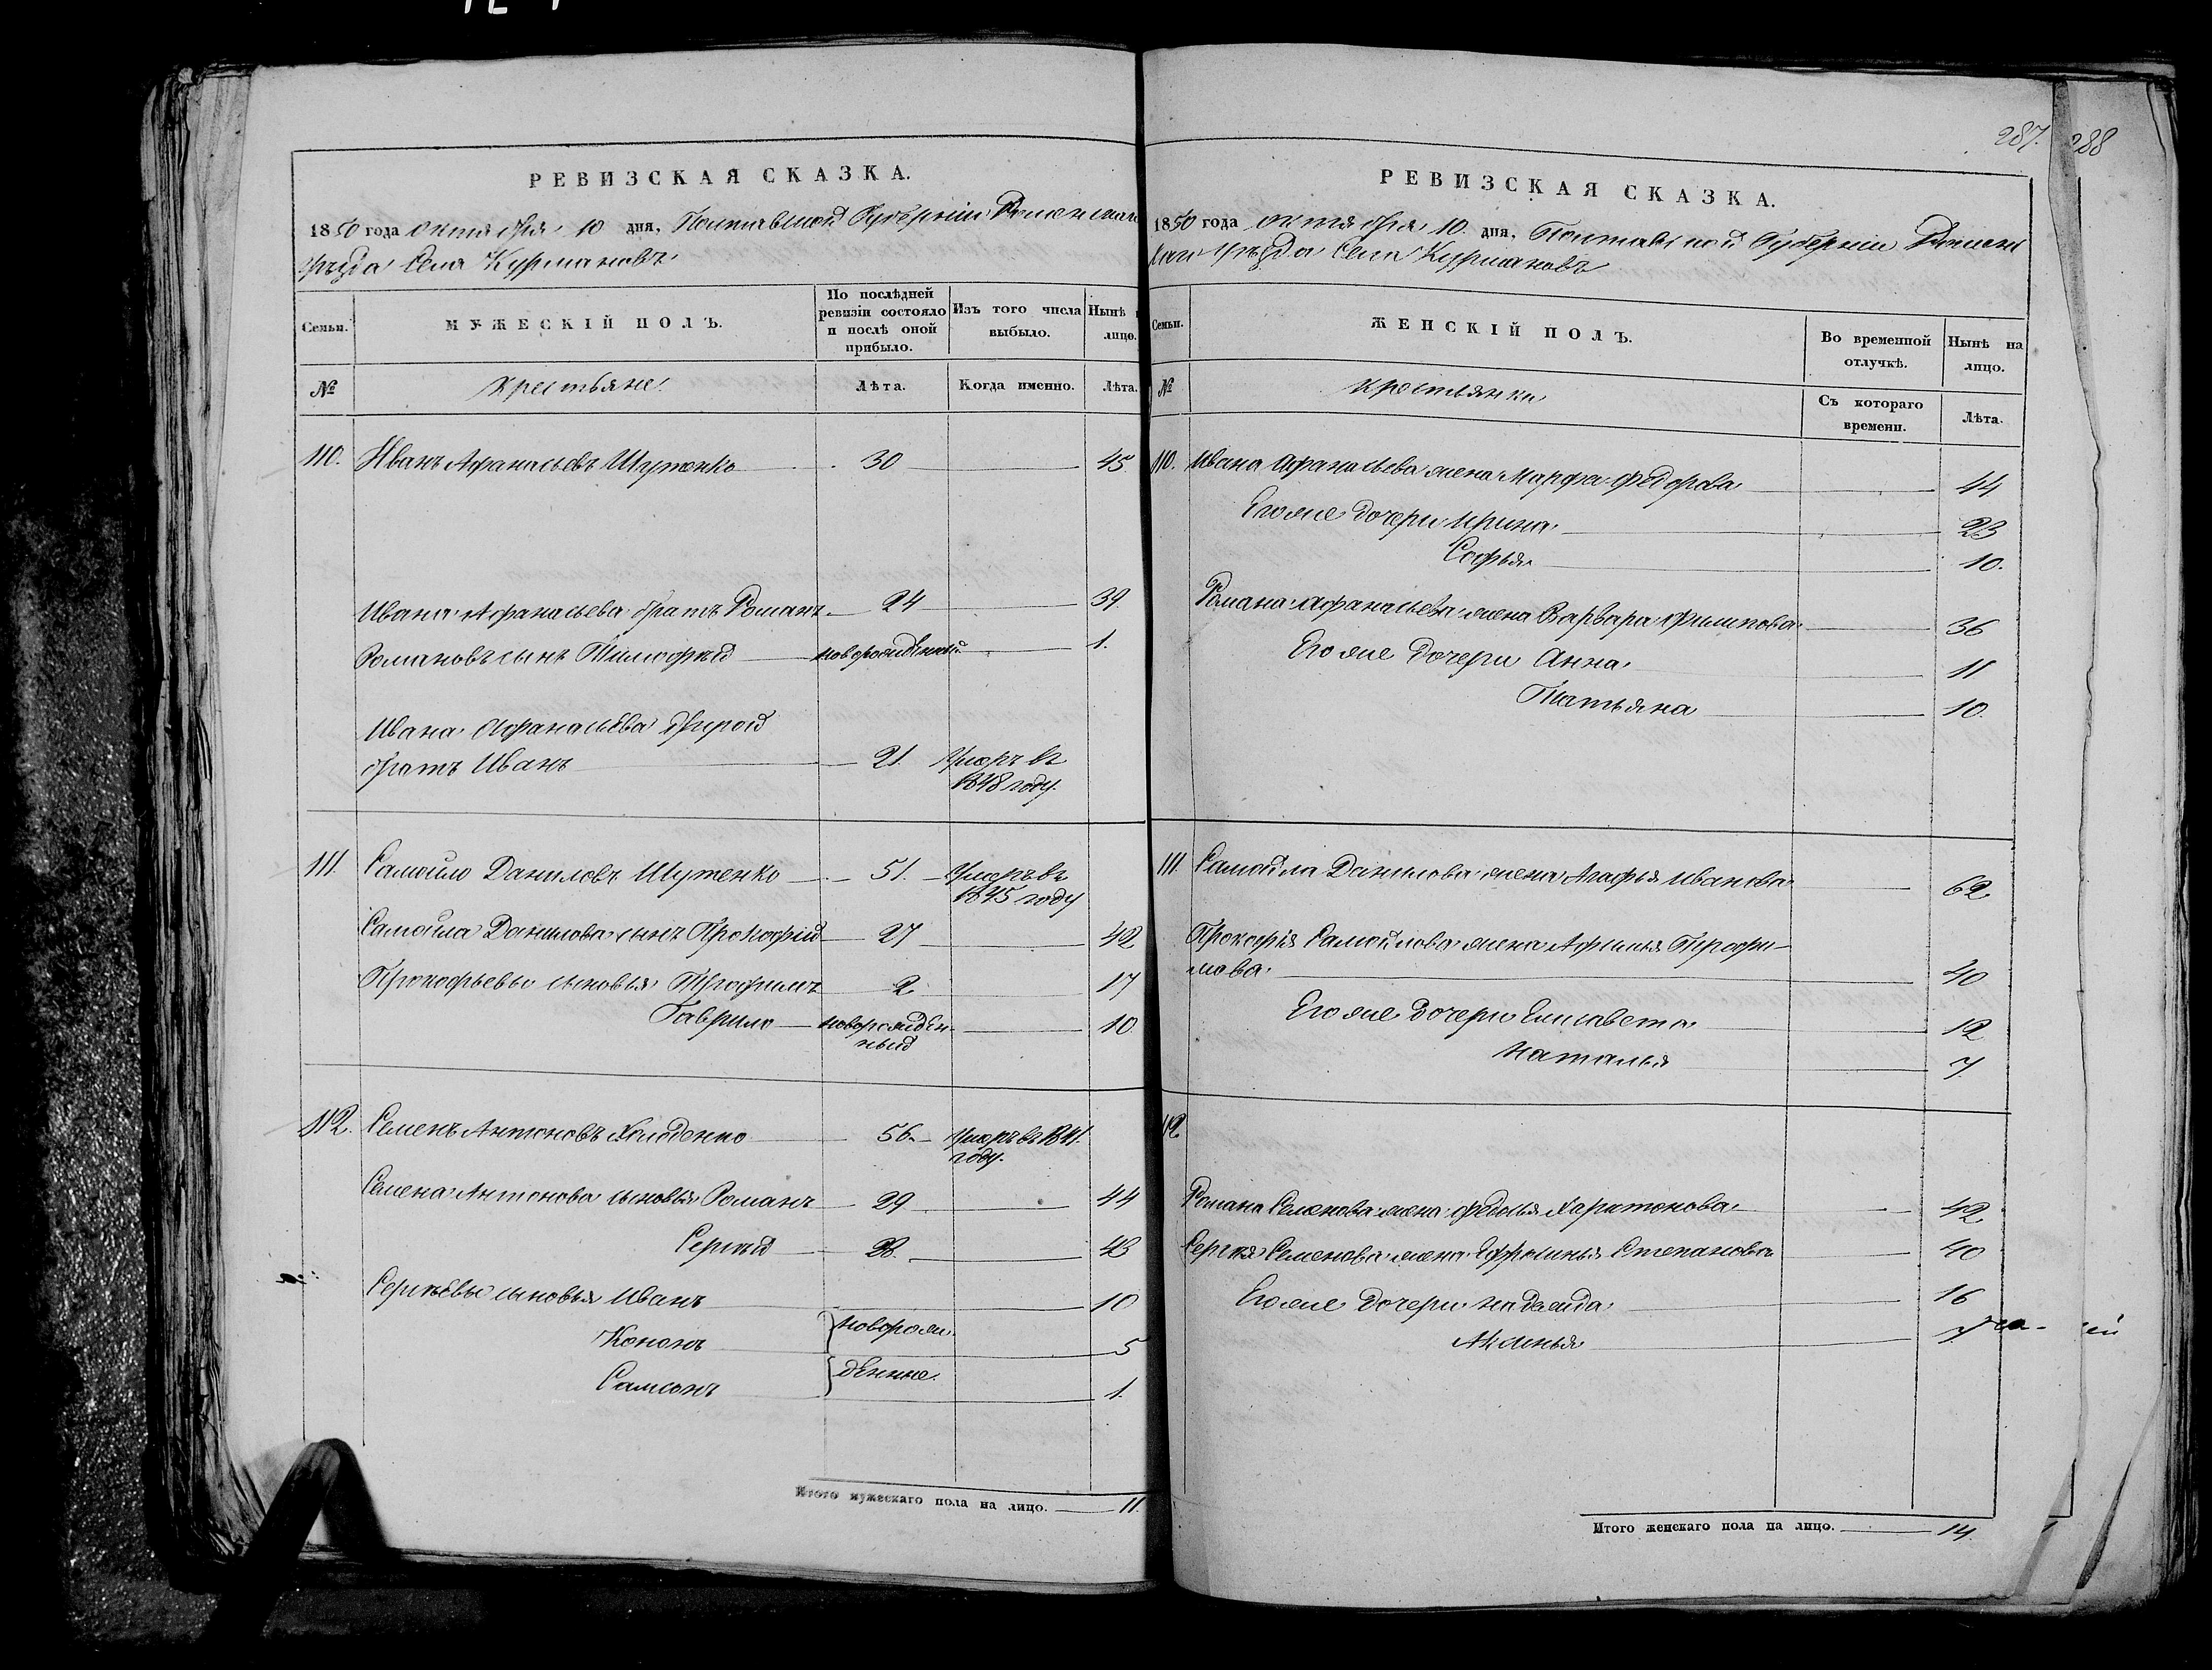 РЕВИЗСКАЯ СКАЗКА.
1850 года октября 10 дня, Полтавской Губерніи Роменскаго
уѣзда села Курмановъ
Семьи.
МУЖЕСКІЙ ПОЛЪ.
По послѣдней ревизіи состояло и послѣ оной прибыло.
Изъ того числа выбыло.
Нынѣ
лицо.
№
Крестьяне
Лѣта.
Когда именно.
Лѣта.
110. Иванъ Афанасьевъ Шутенко 30 45
Ивана Афанасьева братъ Романъ 24 39
Романовъ сынъ Тимофѣй новорожденный 1.
Ивана Афанасьева другой
братъ Иванъ 21. Умеръ въ
1848 году.
111. Самойло Даниловъ Шутенко 51. Умеръ въ
1845 году
Самойла Данилова сынъ Прокофій 27 42
Прокофьевы сыновья Трофимъ 2 17
Гаврило новорожден- 10
ный
112. Семенъ Антоновъ Холоденко 56. Умеръ въ 1841.
году.
Семена Антонова сыновья Романъ 29 44
Сергѣй 28. 43
Сергѣевы сыновья Иванъ 10
новорож
Кононъ 5
денные.
Самсонъ 1.
Итого мужескаго пола на лицо. 11.
287.
288
РЕВИЗСКАЯ СКАЗКА.
1850 года октября 10. дня, Полтавской Губерніи Ромен
скаго уѣзда села Курмановъ
Семьи.
ЖЕНСКІЙ ПОЛЪ.
Во временной отлучкѣ.
Нынѣ на лицо.
№
Крестьянки
Съ котораго времени.
Лѣта.
110. Ивана Афанасьева жена Марфа Федорова 44
Его же дочери Ирина 23
Софья 10.
Романа Афанасьева жена Варвара Филипова 36
Его же дочери Анна 11
Татьяна 10.
111. Самойла Данилова жена Агафья Иванова 62
Прокофія Самойлова жена Афимья Трофи-
мова 40
Его же дочери Елисавета 12
Наталья 7.
112
Романа Семенова жена Федосья Харитонова 42
Сергѣя Семенова жена Ефросинья Степанова 40
Его же дочери Надежда 16
Аксинья 7.
Итого женскаго пола на лицо. 14.